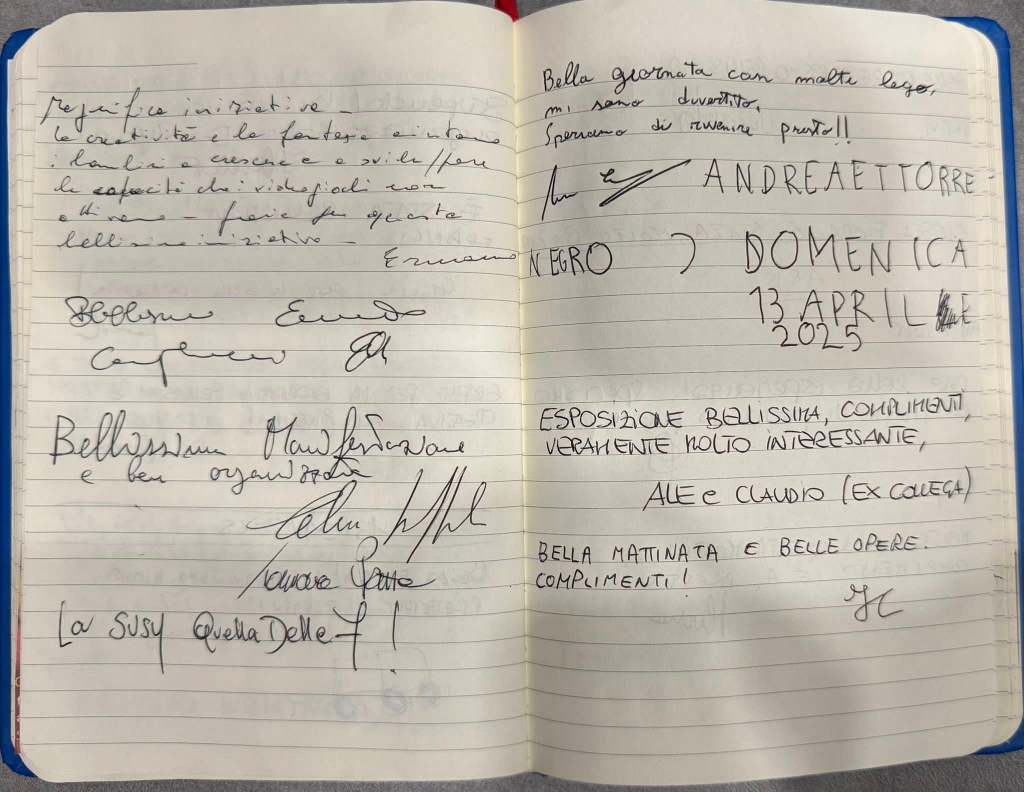 Magnifica iniziativa -
la creatività e la fantasia aiutano
i bambini a crescere e a sviluppare
le capacità che i videogiochi non
attivano - grazie per questa
bellissima iniziativa -
Ermanno
Complimenti
Bellissima Manifestazione
e ben organizzata
La Susy Quella Delle 7!
Bella giornata con molti lego,
mi sono divertito,
Speriamo di rivenire presto!!
ANDREA ETTORRE
NEGRO ) DOMENICA
13 APRILE
2025
ESPOSIZIONE BELLISSIMA, COMPLIMENTI,
VERAMENTE MOLTO INTERESSANTE,
ALE e CLAUDIO (EX COLLEGA)
BELLA MATTINATA E BELLE OPERE.
COMPLIMENTI!